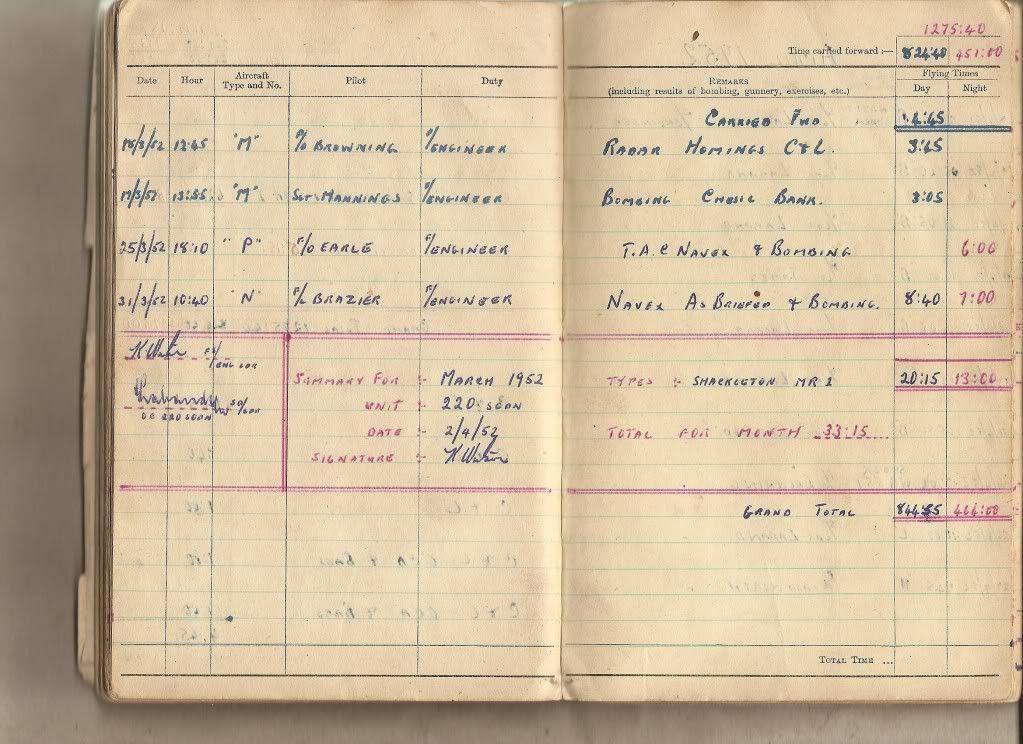 1275:40
Time carried forward :— 824:40 451:00
Date Hour Aircraft Type and No. Pilot Duty REMARKS (including results of bombing, gunnery, exercises, etc.) Flying Times Day Night
CARRIED FWD 4:45
12:45 "M" BROWNING F/ENGINEER RADAR HOMINGS C&L. 3:45
17/3/52 13:55 "M" SGT MANNINGS F/ENGINEER BOMBING CHESIL BANK. 3:05
25/3/52 18:10 "P" F/O EARLE F/ENGINEER T.A.C NAVEX & BOMBING 6:00
31/3/52 10:40 "N" F/L BRAZIER F/ENGINEER NAVEX AS BRIEFED & BOMBING. 8:40 7:00
K Watson FS/ENG LDR
SUMMARY FOR :- MARCH 1952 TYPES :- SHACKLETON MR 1 20:15 13:00
S/LDR
OC 220 SQDN
UNIT :- 220 SQDN
DATE :- 2/4/52 TOTAL FOR MONTH 33:15
SIGNATURE :- K Watson
GRAND TOTAL 844:55 464:00
TOTAL TIME ...